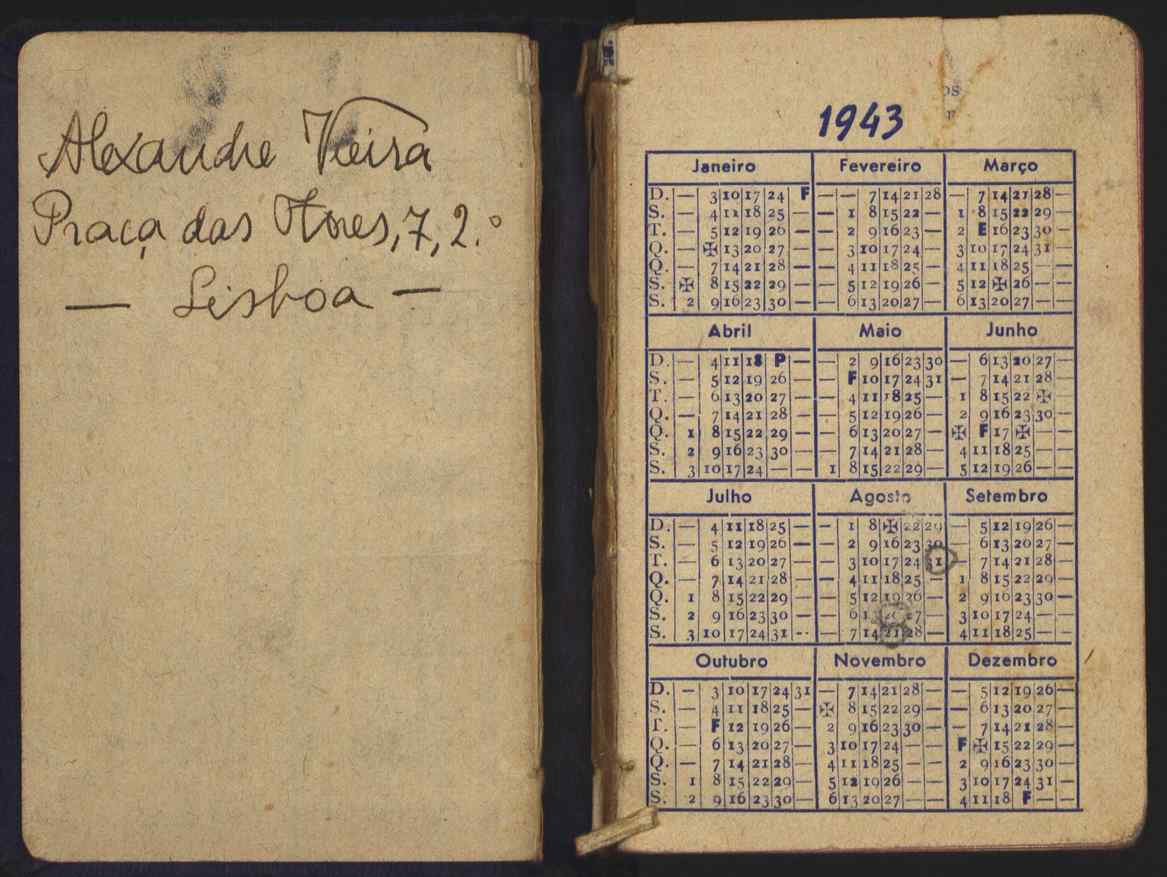 Alexandre Vieira
Praça das Flores, 7, 2.º
— Lisboa —
os
1943
Janeiro Fevereiro Março
D. — 3 10 17 24 F — — 7 14 21 28 — 7 14 21 28 —
S. — 4 11 18 25 — — 1 8 15 22 — 1 8 15 22 29 —
T. — 5 12 19 26 — — 2 9 16 23 — 2 E 16 23 30 —
Q. — ✠ 13 20 27 — 3 10 17 24 — 3 10 17 24 31 —
Q. — 7 14 21 28 — 4 11 18 25 — 4 11 18 25 — —
S. ✠ 8 15 22 29 — 5 12 19 26 — 5 12 ✠ 26 — —
S. 2 9 16 23 30 — 6 13 20 27 — 6 13 20 27 — —
Abril Maio Junho
D. — 4 11 18 P — — 2 9 16 23 30 — 6 13 20 27 —
S. — 5 12 19 26 — F 10 17 24 31 — 7 14 21 28 —
T. — 6 13 20 27 — — 4 11 18 25 — 1 8 15 22 ✠ —
Q. — 7 14 21 28 — — 5 12 19 26 — 2 9 16 23 30 —
Q. 1 8 15 22 29 — — 6 13 20 27 — ✠ F 17 ✠ — —
S. 2 9 16 23 30 — — 7 14 21 28 — 4 11 18 25 — —
S. 3 10 17 24 — — 1 8 15 22 29 — 5 12 19 26 — —
Julho Agosto Setembro
D. — 4 11 18 25 — — 1 8 ✠ 22 29 — 5 12 19 26 —
S. — 5 12 19 26 — — 2 9 16 23 30 — 6 13 20 27 —
T. — 6 13 20 27 — — 3 10 17 24 31 — 7 14 21 28 —
Q. — 7 14 21 28 — — 4 11 18 25 — 1 8 15 22 29 —
Q. 1 8 15 22 29 — — 5 12 19 26 — 2 9 16 23 30 —
S. 2 9 16 23 30 — — 6 13 20 27 — 3 10 17 24 — —
S. 3 10 17 24 31 -- — 7 14 21 28 — 4 11 18 25 — —
Outubro Novembro Dezembro
D. — 3 10 17 24 31 — 7 14 21 28 — — 5 12 19 26 —
S. — 4 11 18 25 — ✠ 8 15 22 29 — — 6 13 20 27 —
T. — F 12 19 26 — 2 9 16 23 30 — — 7 14 21 28 —
Q. — 6 13 20 27 — 3 10 17 24 — — F ✠ 15 22 29 —
Q. — 7 14 21 28 — 4 11 18 25 — — 2 9 16 23 30 —
S. 1 8 15 22 29 — 5 12 19 26 — — 3 10 17 24 31 —
S. 2 9 16 23 30 — 6 13 20 27 — — 4 11 18 F — —